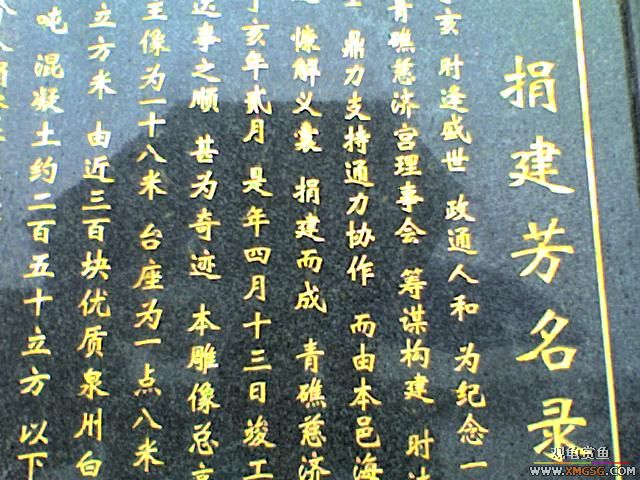 捐建芳名录
丁亥 时逢盛世 政通人和 为纪念一
青礁慈济宫理事会 筹谋构建 时
鼎力支持通力协作 而由本邑海
慷解义囊 捐建而成 青礁慈济
丁亥年贰月 是年四月十三日竣工
达事之顺 甚为奇迹 本雕像总高
主像为一十八米 台座为一点八米
立方米 由近三百块优质泉州白
吨 混凝土约二百五十立方 以下
观龟赏鱼
WWW.XMGSG.COM